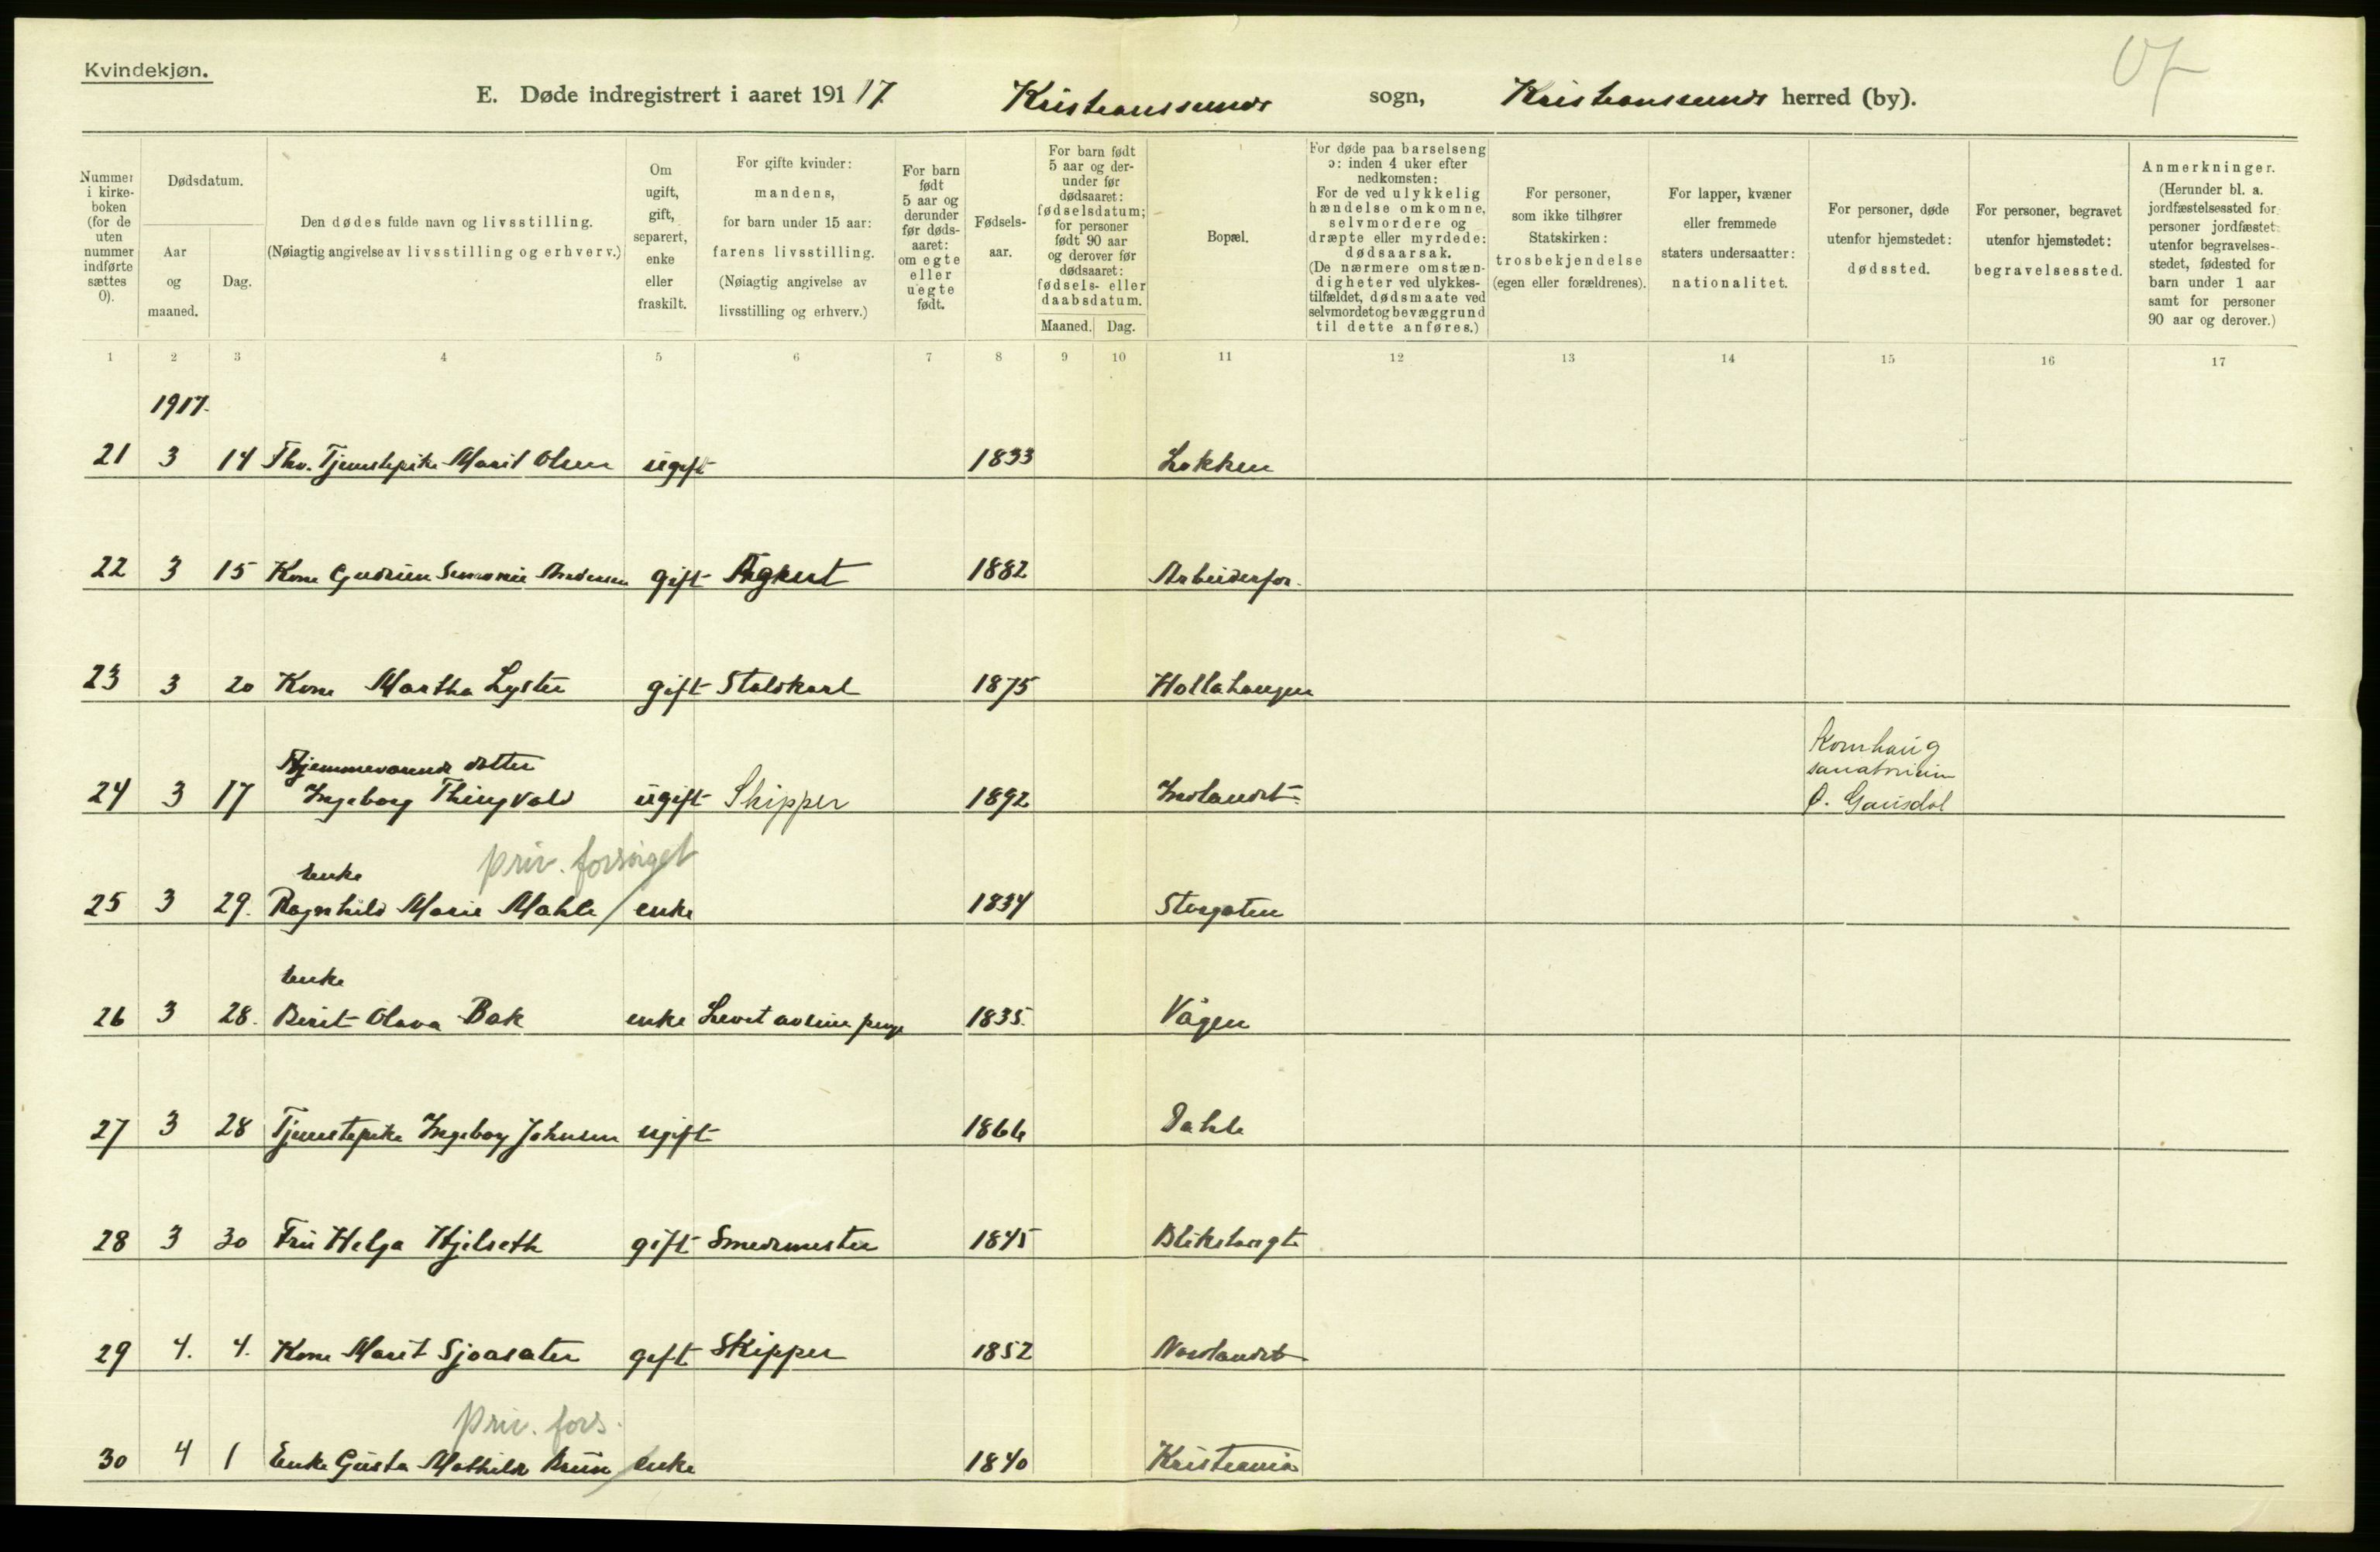 Kvindekjøn.
E. Døde indregistrert i aaret 191 17. Kristianssunds sogn, Kristianssunds herred (by).
07
Nummer i kirke- boken (for de uten nummer indførte sættes 0).
Dødsdatum.
Aar og maaned.
Dag.
Den dødes fulde navn og livsstilling.
(Nøiagtig angivelse av livsstilling og erhverv.)
Om ugift, gift, separert, enke eller fraskilt.
For gifte kvinder: mandens, for barn under 15 aar: farens livsstilling. (Nøiagtig angivelse av livsstilling og erhverv.)
For barn født 5 aar og derunder før døds- aaret: om egte eller uegte født.
Fødsels- aar.
For barn født 5 aar og der- under før dødsaaret: fødselsdatum; for personer født 90 aar og derover før dødsaaret: fødsels- eller daabsdatum.
Maaned. Dag.
Bopæl.
For døde paa barselseng ɔ: inden 4 uker efter nedkomsten: For de ved ulykkelig hændelse omkomne, selvmordere og dræpte eller myrdede: dødsaarsak. (De nærmere omstæn- digheter ved ulykkes- tilfældet, dødsmaate ved selvmordet og bevæggrund til dette anføres.)
For personer, som ikke tilhører Statskirken: trosbekjendelse (egen eller forældrenes).
For lapper, kvæner eller fremmede staters undersaatter: nationalitet.
For personer, døde utenfor hjemstedet: dødssted.
For personer, begravet utenfor hjemstedet: begravelsessted.
Anmerkninger. (Herunder bl. a. jordfæstelsessted for personer jordfæstet utenfor begravelses- stedet, fødested for barn under 1 aar samt for personer 90 aar og derover.)
1 2 3 4 5 6 7 8 9 10 11 12 13 14 15 16 17
1917.
21 3 14 Fhv. Tjenestepike Marit Olsen ugift 1833 Løkken
22 3 15 Kone Gudrun Andersen gift Agent 1882 Arbeiderfor.
23 3 20 Kone Martha Lyster gift Staldkarl 1875 Hollahaugen
Hjemmeværende datter
24 3 17 Ingeborg Thingvold ugift Skipper 1892 Indlandet
Kornhaug
sanatorium
Ø. Gausdal
priv. forsørget
Enke
25 3 29. Ragnhild Marie Mahle / enke 1834 Storgaten
Enke
26 3 28. Berit Olava Bak enke Levet av sine penge 1835. Vågen
27 3 28 Tjenestepike Ingeborg Johnsen ugift 1866 Dahle
28 3 30 Fru Helga Hjelseth gift Smedmester 1845
29 4. 4. Kone Marit Sjøasæter gift Skipper 1852 Nordlandet
priv. fors.
30 4 1 Enke Gusta Mathilde Bruun / enke 1840 Kristiania